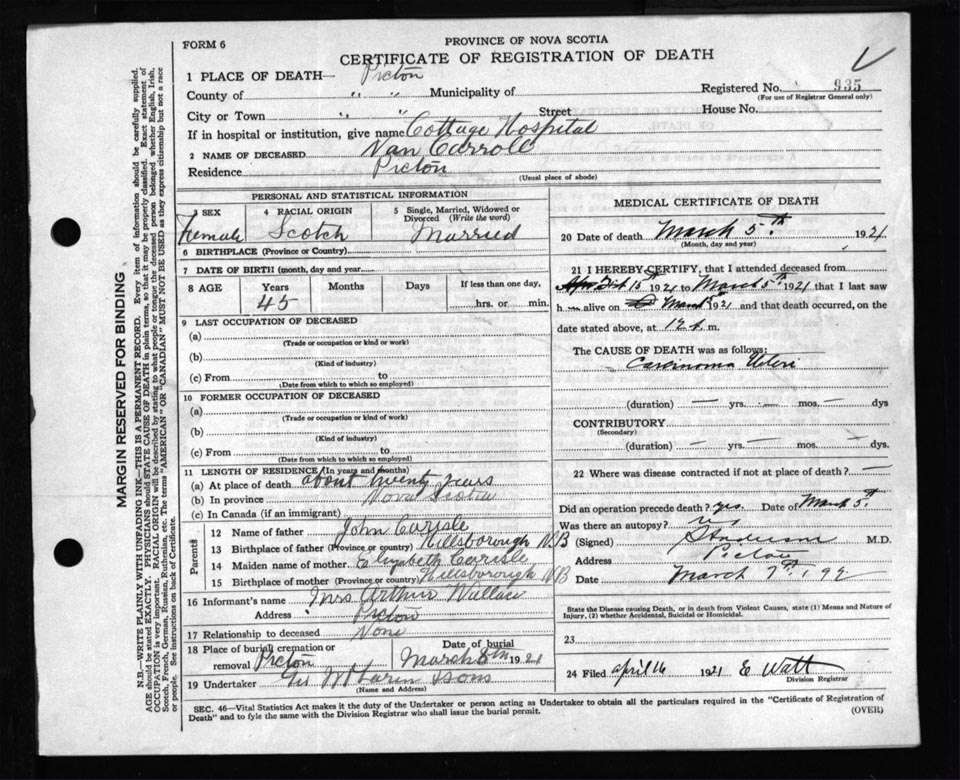 FORM 6
PROVINCE OF NOVA SCOTIA
CERTIFICATE OF REGISTRATION OF DEATH
1 PLACE OF DEATH— Pictou
Registered No. 935
(For use of Registrar General only)
County of " " Municipality of
City or Town " " Street House No.
If in hospital or institution, give name Cottage Hospital
2 NAME OF DECEASED Nan Carroll
Residence Pictou
(Usual place of abode)
PERSONAL AND STATISTICAL INFORMATION
3 SEX Female
4 RACIAL ORIGIN Scotch
5 Single, Married, Widowed or Divorced (Write the word) Married
6 BIRTHPLACE (Province or Country)
7 DATE OF BIRTH (month, day and year)
8 AGE Years Months Days If less than one day,
45 hrs. or min.
9 LAST OCCUPATION OF DECEASED
(a)
(Trade or occupation or kind or work)
(b)
(Kind of industry)
(c) From to
(Date from which to which so employed)
10 FORMER OCCUPATION OF DECEASED
(a)
(Trade or occupation or kind of work)
(b)
(Kind of industry)
(c) From to
(Date from which to which so employed)
11 LENGTH OF RESIDENCE (In years and months)
(a) At place of death about twenty years
(b) In province Nova Scotia
(c) In Canada (if an immigrant)
Parents
12 Name of father John Carlisle
13 Birthplace of father (Province or country) Hillsborough NB
14 Maiden name of mother Elizabeth Carlisle
15 Birthplace of mother (Province or country) Hillsborough NB
16 Informant's name Mrs Arthur Wallace
Address Pictou
17 Relationship to deceased None
18 Place of burial, cremation or removal Pictou
Date of burial March 8th 1921
19 Undertaker McLaren & Sons
(Name and Address)
MEDICAL CERTIFICATE OF DEATH
20 Date of death March 5th 1921
(Month, day and year)
21 I HEREBY CERTIFY, that I attended deceased from
15th 1921 to March 5th 1921 that I last saw
h alive on March 1921 and that death occurred, on the
date stated above, at 12 m.
The CAUSE OF DEATH was as follows:
Carcinoma Uteri
(duration) — yrs. — mos. — dys
CONTRIBUTORY
(Secondary)
(duration) — yrs. — mos. — dys.
22 Where was disease contracted if not at place of death? —
Did an operation precede death? yes. Date of March 5th
Was there an autopsy?
(Signed) M.D.
Pictou
Date March 7th, 192
State the Disease causing Death, or in death from Violent Causes, state (1) Means and Nature of
Injury, (2) whether Accidental, Suicidal or Homicidal.
23
24 Filed april 16 1921 E Watt
Division Registrar
SEC. 46—Vital Statistics Act makes it the duty of the Undertaker or person acting as Undertaker to obtain all the particulars required in the "Certificate of Registration of
Death" and to fyle the same with the Division Registrar who shall issue the burial permit.
(OVER)
MARGIN RESERVED FOR BINDING
N.B.—WRITE PLAINLY WITH UNFADING INK—THIS IS A PERMANENT RECORD. Every item of information should be carefully supplied.
AGE should be stated EXACTLY. PHYSICIANS should STATE CAUSE OF DEATH in plain terms, so that it may be properly classified. Exact statement of
OCCUPATION is very important. RACIAL ORIGIN will be described by stating to what people or tongue the deceased person belonged whether English, Irish,
Scotch, French, German, Russian, Ruthenian, etc. The terms "AMERICAN" OR "CANADIAN" MUST NOT BE USED as they express citizenship but not a race
or people. See instructions on back of Certificate.